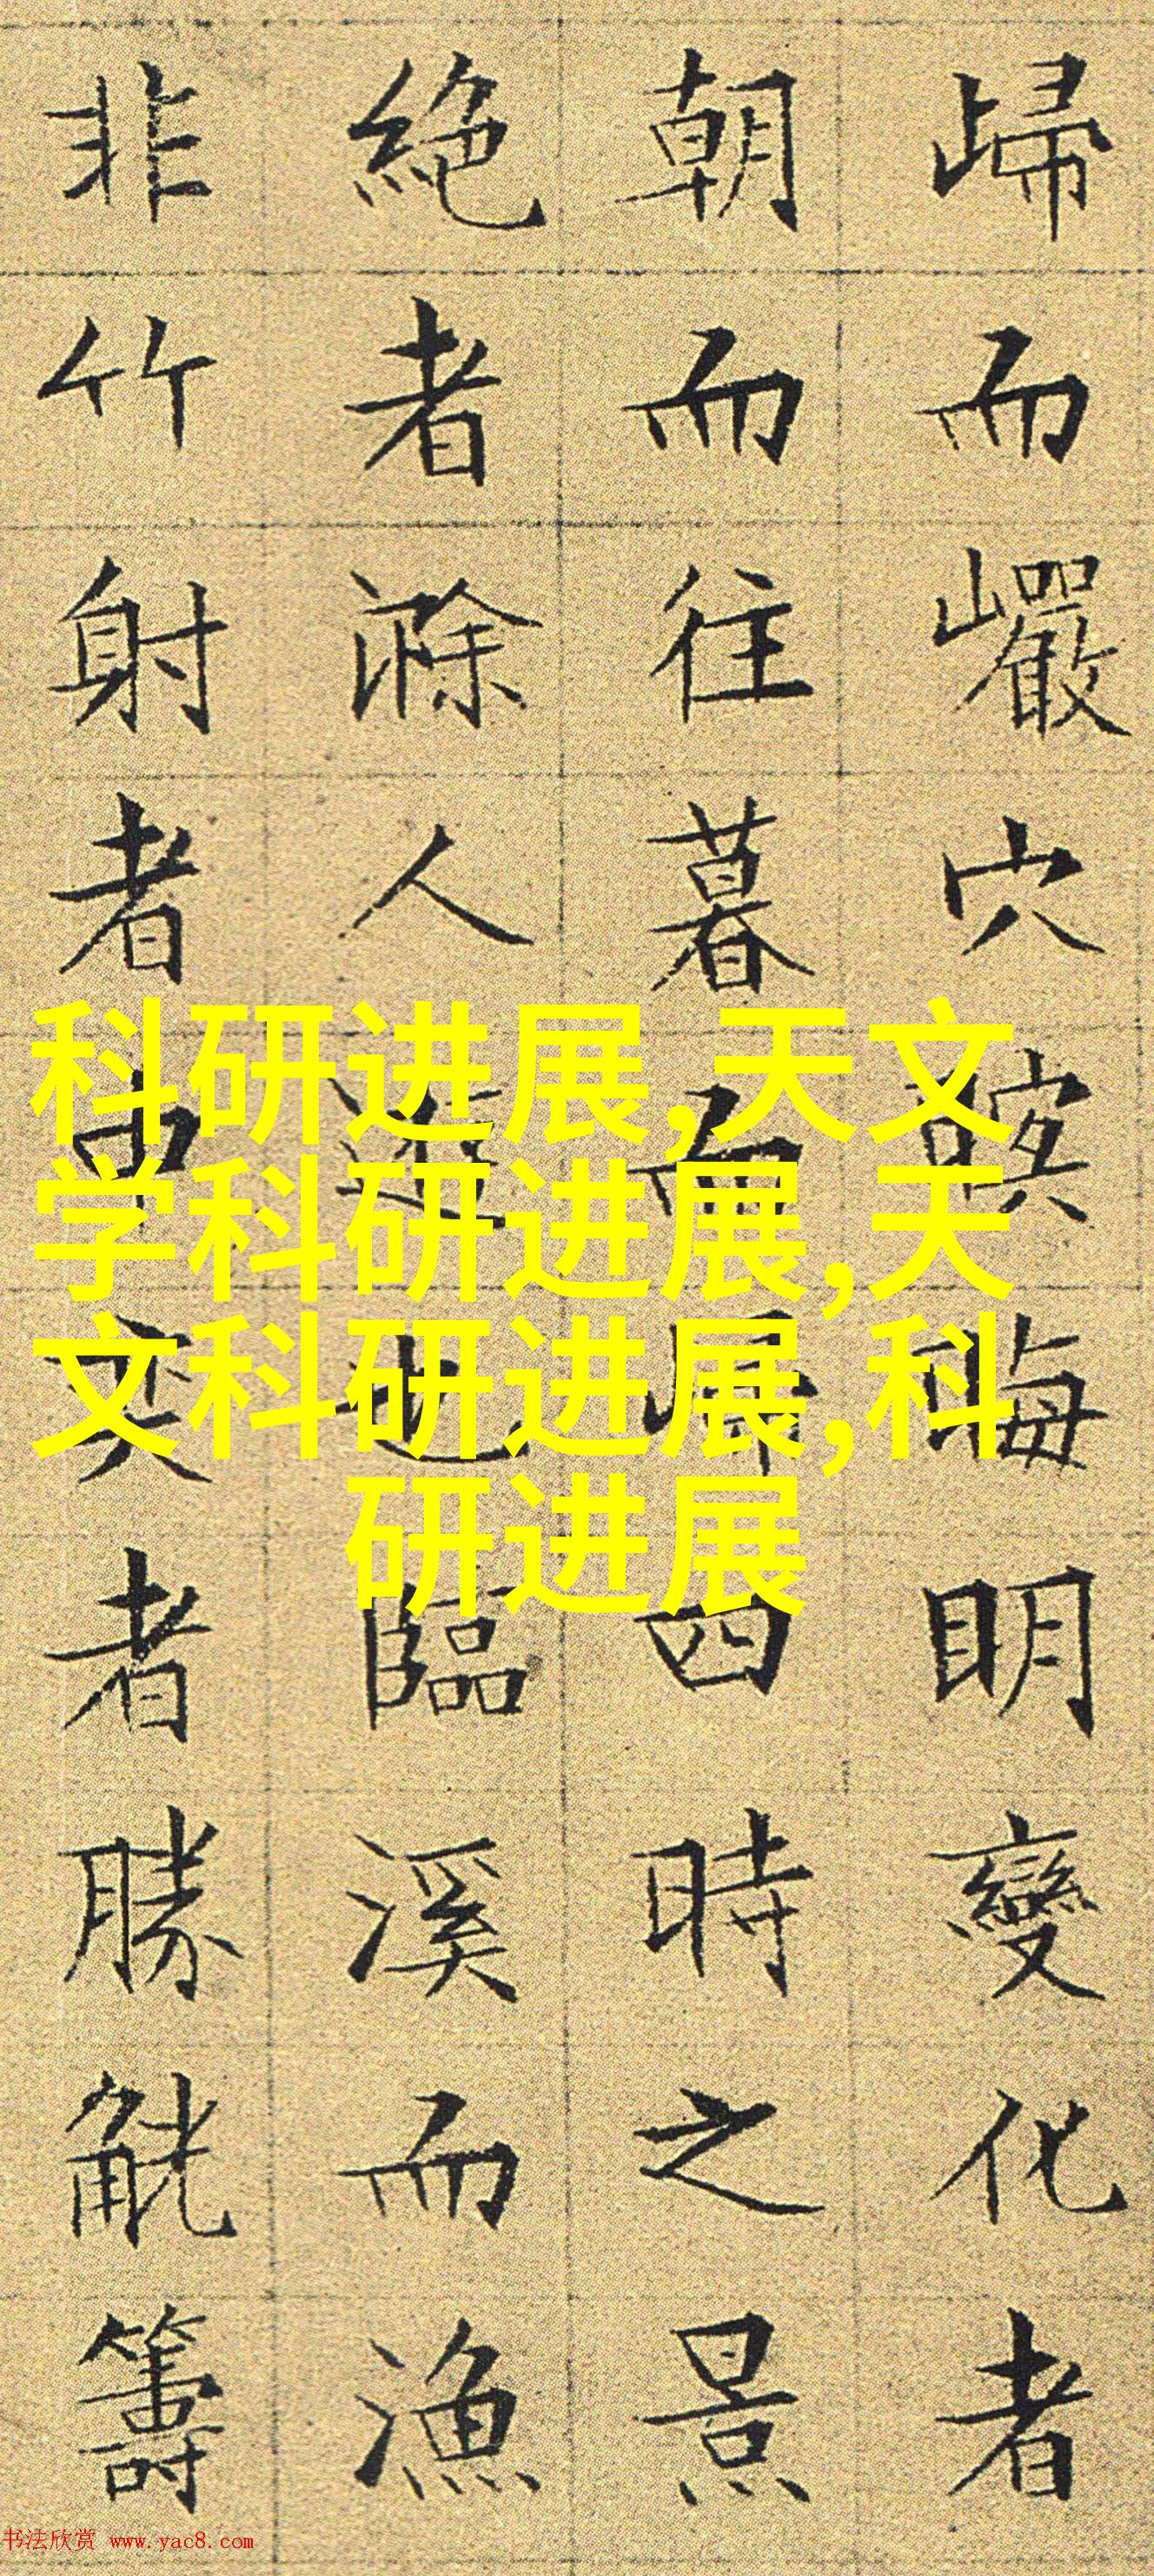 歸而巖穴暝晦明變化者
朝而往暮而歸四時之景
絕者滁人遊也臨溪而漁
非竹射者中奕者勝觥籌
科研进展,天文
学科研进展,天
文科研进展,科
研进展
书法欣赏 www.yac8.com